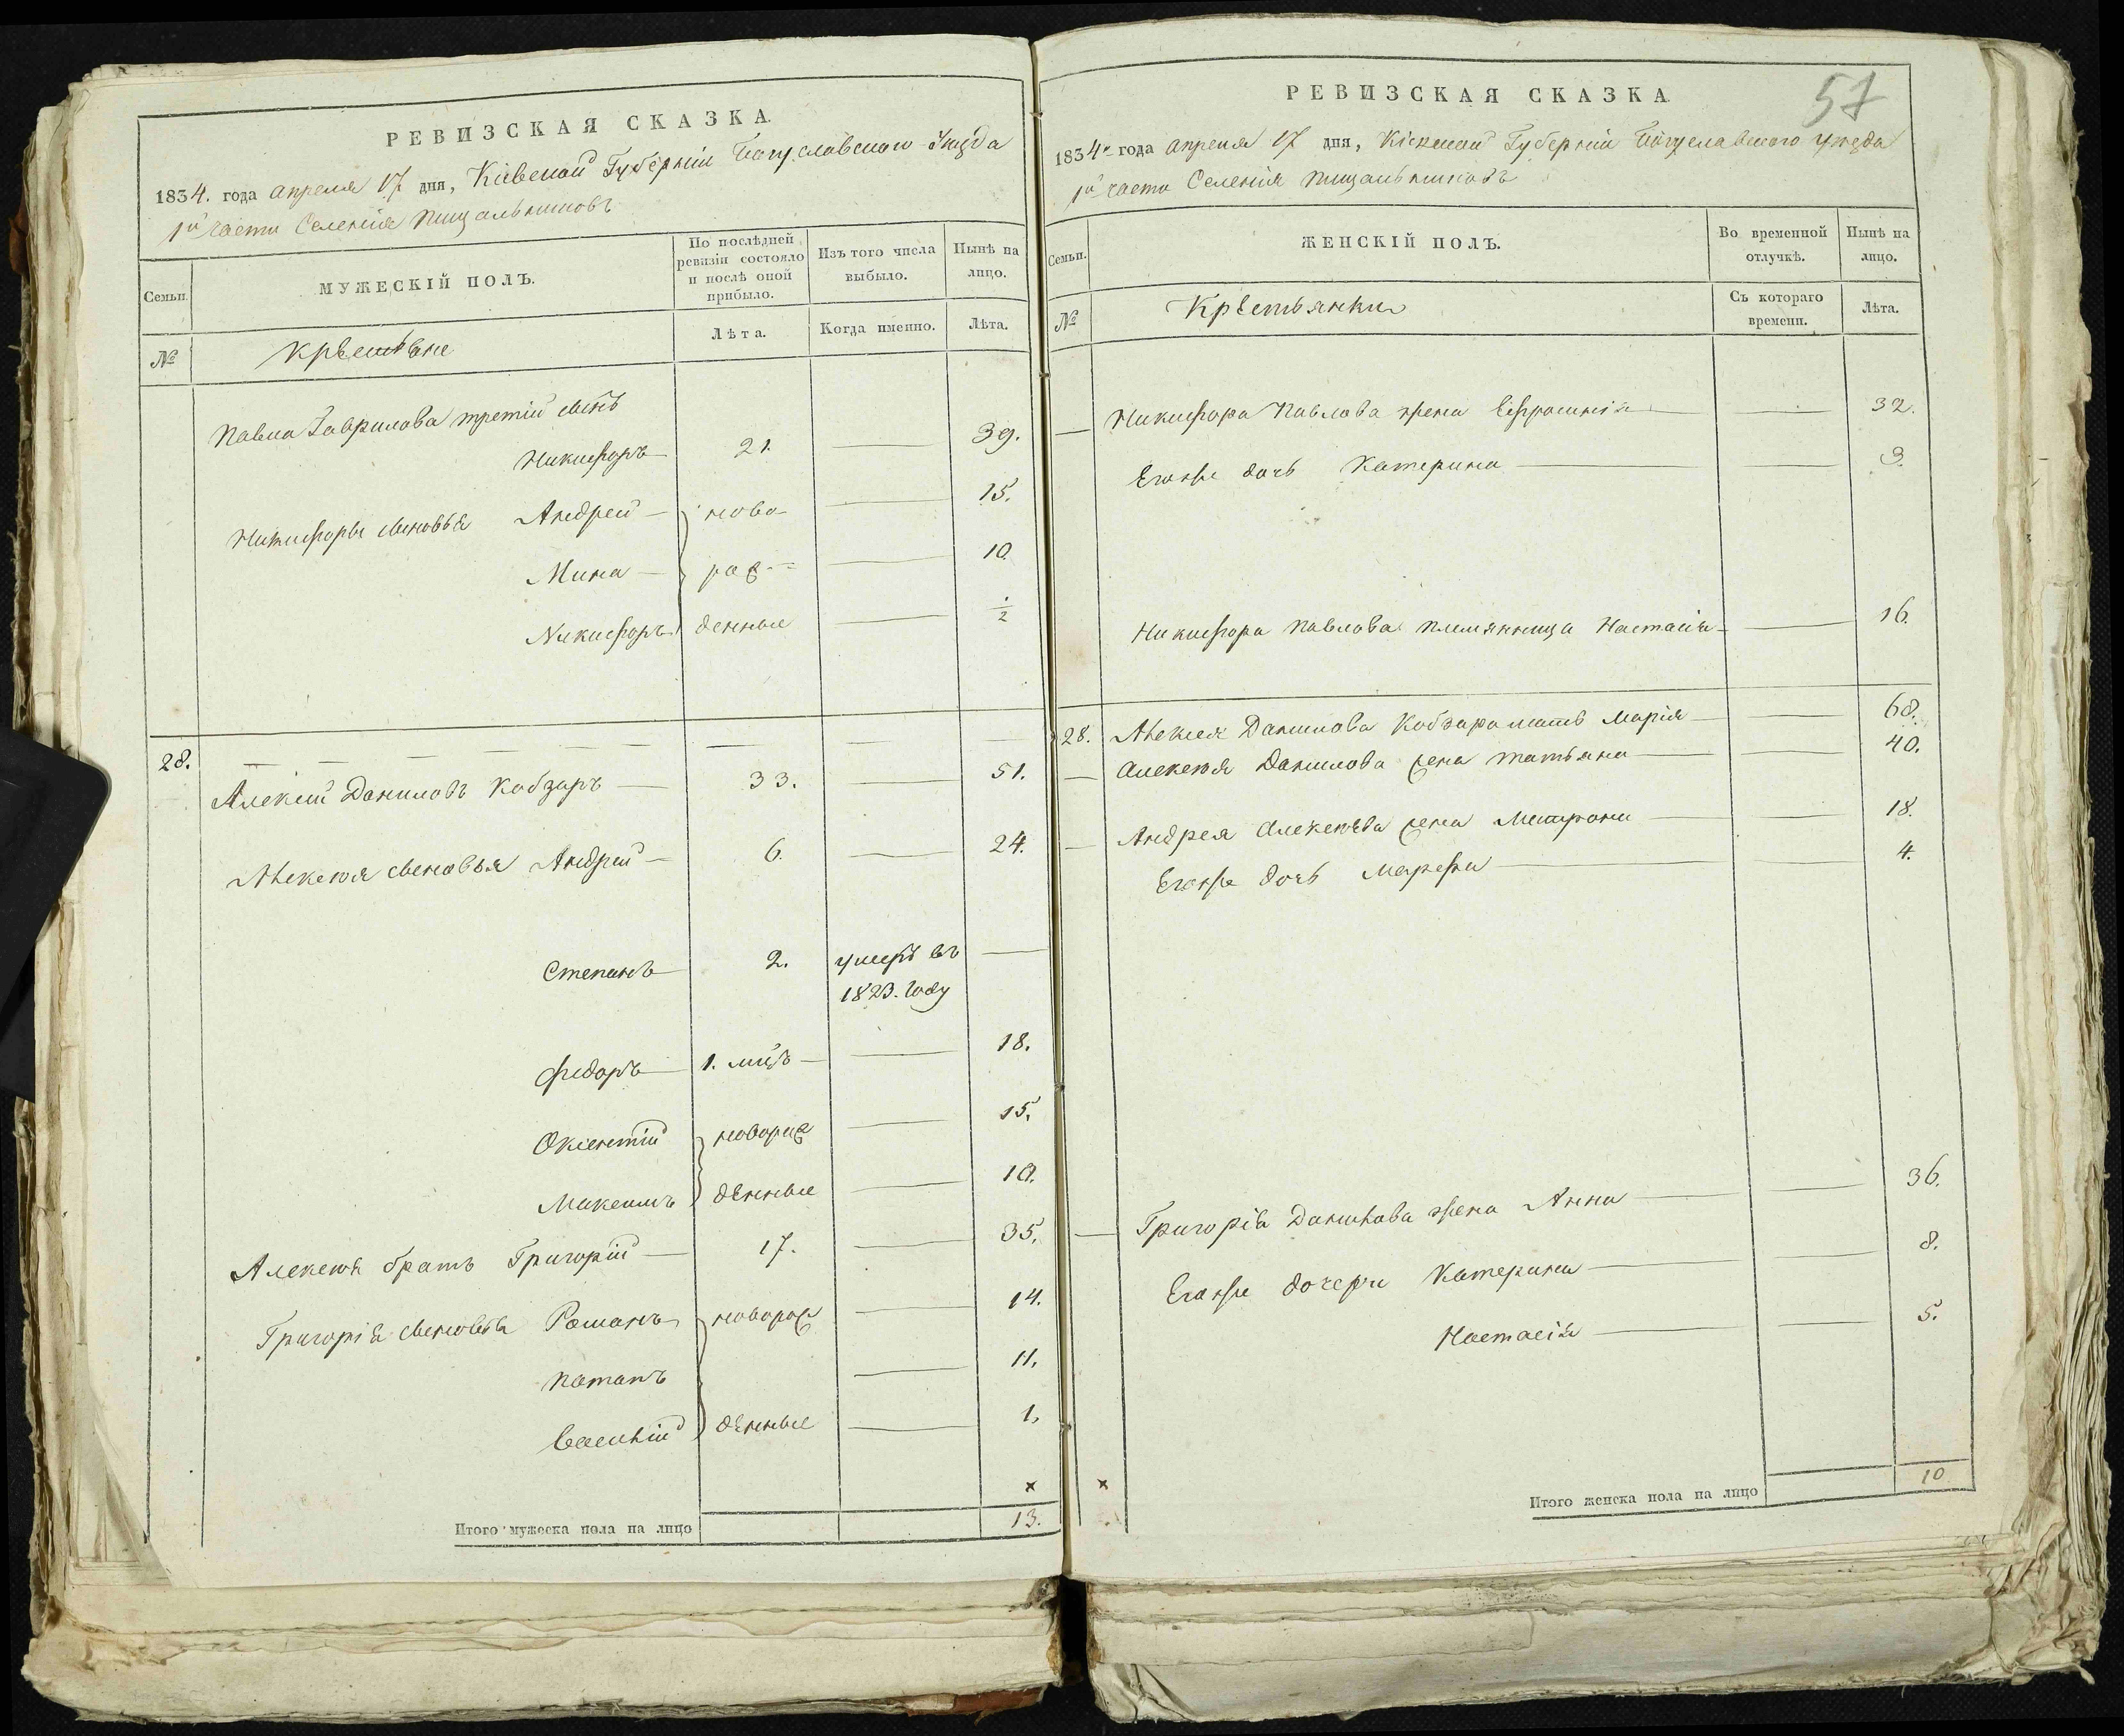 РЕВИЗСКАЯ СКАЗКА
1834. года апреля 17 дня, Кіевской Губерніи Богуславскаго Уезда
1й части Селенія Пищальниковъ
Семьи.
МУЖЕСКІЙ ПОЛЪ.
По послѣдней ревизіи состояло и послѣ оной прибыло.
Изъ того числа выбыло.
Нынѣ на лицо.
№
Крѣстьяне
Лѣта.
Когда именно.
Лѣта.
Павла Гаврилова третій сынъ
Никифоръ 21. 39.
Никифоры сыновья Андрей ново 15.
Мина рож 10.
Никифоръ денные 1/2
28.
Алексій Даниловъ Кобзарь 33. 51.
Алексея сыновья Андрей 6. 24.
Степанъ 2. умеръ въ
1823. году
Федоръ 1. мцъ 18.
Оксентій новорож 15.
Максимъ дѣнные 10.
Алексея братъ Григорій 17. 35.
Григорія сыновья Романъ новорож 14.
Потапъ 11.
Василій дѣнные 1.
×
Итого мужеска пола на лицо 13.
57
РЕВИЗСКАЯ СКАЗКА
1834го года апреля 17 дня, Кіевской Губерніи Богуславского уезда
1й части Селенія Пищальниковъ
Семьи.
ЖЕНСКІЙ ПОЛЪ.
Во временной отлучкѣ.
Нынѣ на лицо.
№
Крѣстьянки
Съ котораго времени.
Лѣта.
Никифора Павлова жена Ефросинія 32.
Егоже дочь Катерина 3.
Никифора Павлова племянница Настасія 16.
28. Алексея Данилова Кобзаря мать Марія 68.
Алексея Данилова жена Татьяна 40.
Андрея Алексеева жена Матрона 18.
Егоже дочь Марфа 4.
Григорія Данилова жена Анна 36.
Егоже дочери Катерина 8.
Настасія 5.
×
Итого женска пола на лицо 10